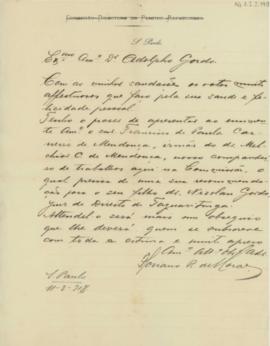 Commissão Directora do Partido Republicano
S. Paulo
Ex.mo Am.o Dr. Adolpho Gordo.
Com as minhas saudações os votos muito
affectuosos que faço pela sua saude e fe-
licidade pessoal.
Tenho o prazer de apresentar ao eminen-
te Am.o o snr Francisco de Paula Car-
neiro de Mendonça, irmão do dr. Mel-
chior C. de Mendonça, nosso companhei-
ro de trabalhos aqui na Commissão, o
qual precisa de uma sua recommenda-
ção para o seu filho dr. Nicolau Gordo,
Juiz de Direito de Taquaritinga.
Attendel-o será mais um obsequio
que lhe deverá quem se subscreve
com toda a estima e muito apreço
Am.o Att.o Obr.
S. Paulo